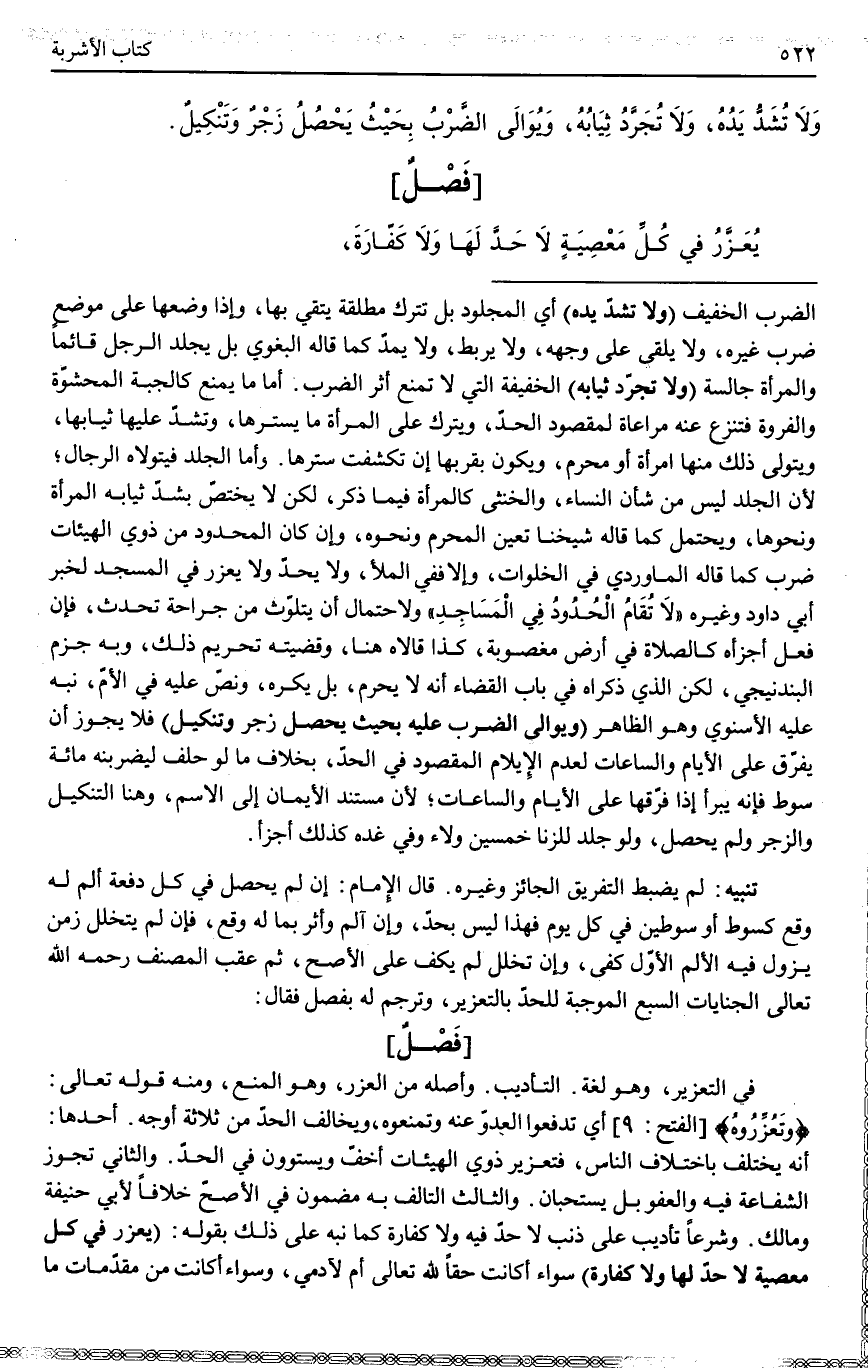 ٥٢٢ كتاب الأشربة
وَلَا تُشَدُّ يَدُهُ، وَلَا تُجَرَّدُ ثِيَابُهُ، وَيُوَالَى الضَّرْبُ بِحَيْثُ يَحْصُلُ زَجْرٌ وَتَنْكِيلٌ.
[فَصْلٌ]
يُعَزَّرُ في كُلِّ مَعْصِيَةٍ لَا حَدَّ لَهَا وَلَا كَفَّارَةَ،
الضرب الخفيف (ولا تشدّ يده) أي المجلود بل تترك مطلقة يتقي بها، وإذا وضعها على موضع
ضرب غيره، ولا يلقى على وجهه، ولا يربط، ولا يمدّ كما قاله البغوي بل يجلد الرجل قائماً
والمرأة جالسة (ولا تجرّد ثيابه) الخفيفة التي لا تمنع أثر الضرب. أما ما يمنع كالجبة المحشوّة
والفروة فتنزع عنه مراعاة لمقصود الحدّ، ويترك على المرأة ما يسترها، وتشدّ عليها ثيابها،
ويتولى ذلك منها امرأة أو محرم، ويكون بقربها إن تكشفت سترها. وأما الجلد فيتولاه الرجال؛
لأن الجلد ليس من شأن النساء، والخنثى كالمرأة فيما ذكر، لكن لا يختصّ بشدّ ثيابه المرأة
ونحوها، ويحتمل كما قاله شيخنا تعين المحرم ونحوه، وإن كان المحدود من ذوي الهيئات
ضرب كما قاله الماوردي في الخلوات، وإلا ففي الملأ، ولا يحدّ ولا يعزر في المسجد لخبر
أبي داود وغيره «لَا تُقَامُ الْحُدُودُ فِي الْمَسَاجِدِ» ولاحتمال أن يتلوّث من جراحة تحدث، فإن
فعل أجزأه كالصلاة في أرض مغصوبة، كذا قالاه هنا، وقضيته تحريم ذلك، وبه جزم
البندنيجي، لكن الذي ذكراه في باب القضاء أنه لا يحرم، بل يكره، ونصّ عليه في الأمّ، نبه
عليه الأسنوي وهو الظاهر (ويوالى الضرب عليه بحيث يحصل زجر وتنكيل) فلا يجوز أن
يفرّق على الأيام والساعات لعدم الإيلام المقصود في الحدّ، بخلاف ما لو حلف ليضربنه مائة
سوط فإنه يبرأ إذا فرّقها على الأيام والساعات؛ لأن مستند الأيمان إلى الاسم، وهنا التنكيل
والزجر ولم يحصل، ولو جلد للزنا خمسين ولاء وفي غده كذلك أجزأ.
تنبيه: لم يضبط التفريق الجائز وغيره. قال الإمام: إن لم يحصل في كل دفعة ألم له
وقع كسوط أو سوطين في كل يوم فهذا ليس بحدّ، وإن آلم وأثر بما له وقع، فإن لم يتخلل زمن
يزول فيه الألم الأوّل كفى، وإن تخلل لم يكف على الأصح، ثم عقب المصنف رحمه الله
تعالى الجنايات السبع الموجبة للحدّ بالتعزير، وترجم له بفصل فقال:
[فَصْلٌ]
في التعزير، وهو لغة. التأديب. وأصله من العزر، وهو المنع، ومنه قوله تعالى:
﴿وَتُعَزِّرُوهُ﴾ [الفتح: ٩] أي تدفعوا العدوّ عنه وتمنعوه، ويخالف الحدّ من ثلاثة أوجه. أحدها:
أنه يختلف باختلاف الناس، فتعزير ذوي الهيئات أخفّ ويستوون في الحدّ. والثاني تجوز
الشفاعة فيه والعفو بل يستحبان. والثالث التالف به مضمون في الأصحّ خلافاً لأبي حنيفة
ومالك. وشرعاً تأديب على ذنب لا حدّ فيه ولا كفارة كما نبه على ذلك بقوله: (يعزر في كل
معصية لا حدّ لها ولا كفارة) سواء أكانت حقاً لله تعالى أم لآدمي، وسواء أكانت من مقدّمات ما